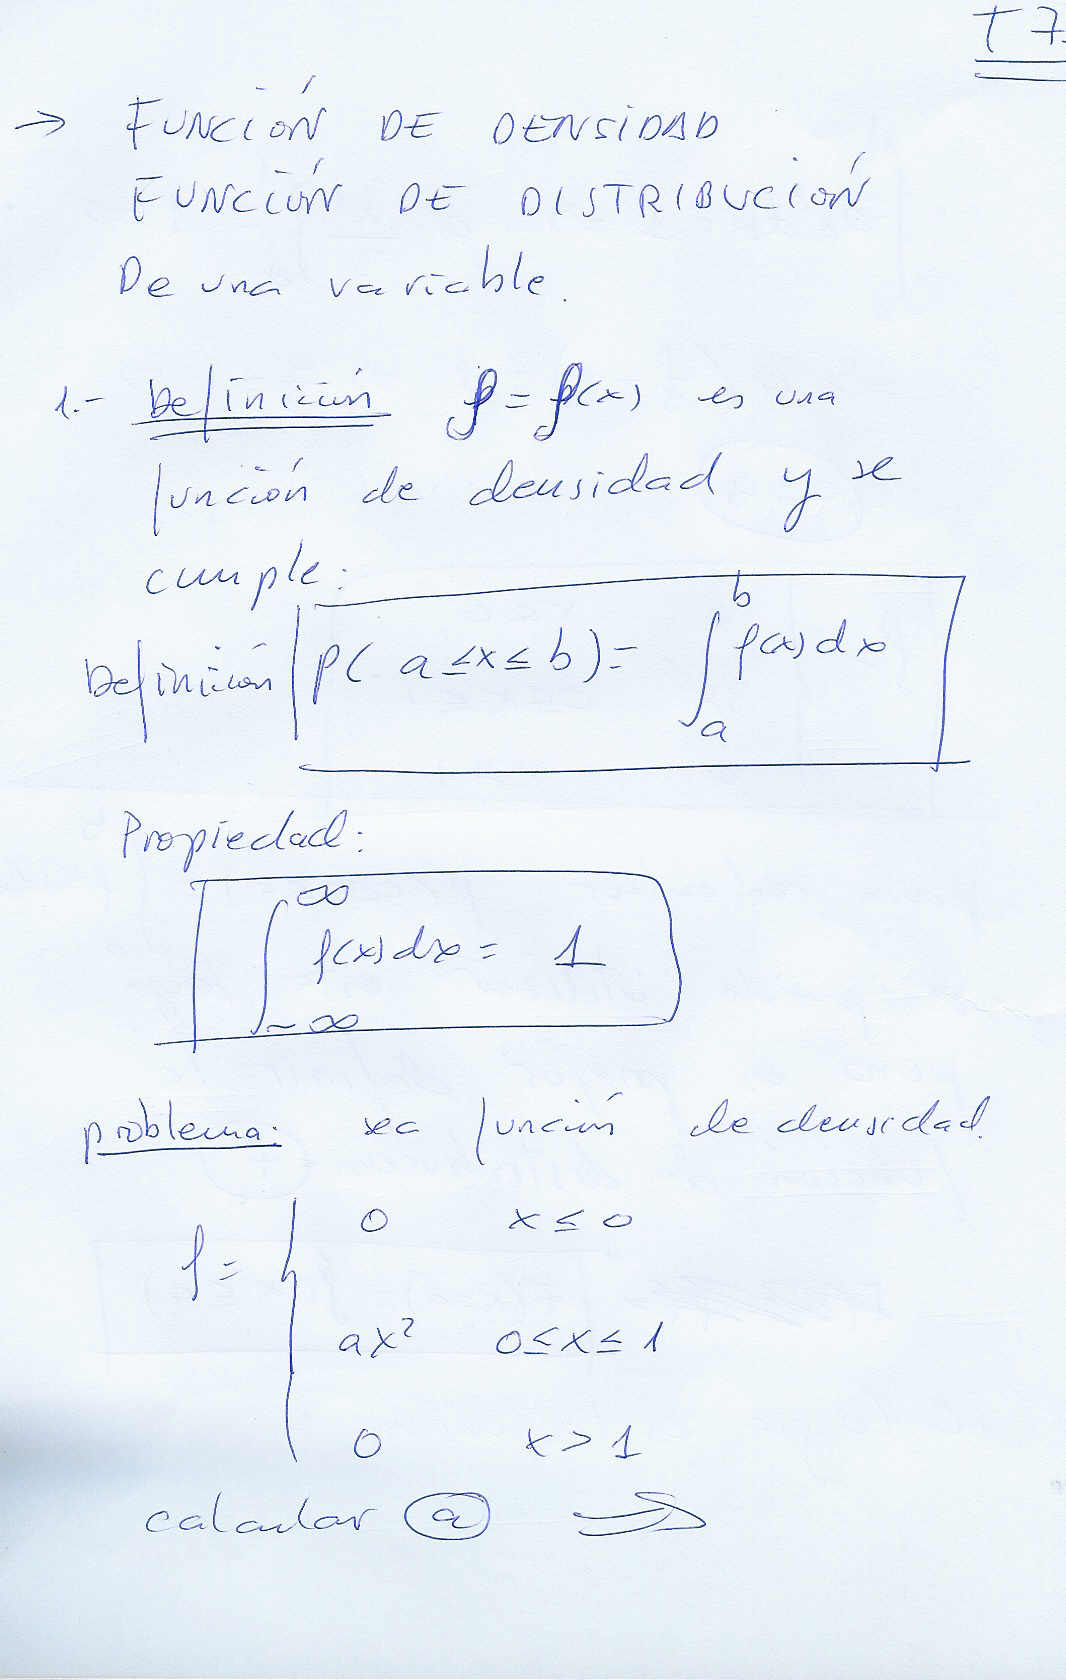 T7.
→ FUNCIÓN DE DENSIDAD
FUNCIÓN DE DISTRIBUCIÓN
De una variable.
1.- Definición f = f(x) es una
función de densidad y se
cumple:
Definición p( a ≤ x ≤ b) = ∫_a^b f(x) dx
Propiedad:
∫_{-∞}^{∞} f(x) dx = 1
problema: sea función de densidad.
f = { 0 x ≤ 0
ax² 0 ≤ x ≤ 1
0 x > 1
calcular a ⇒